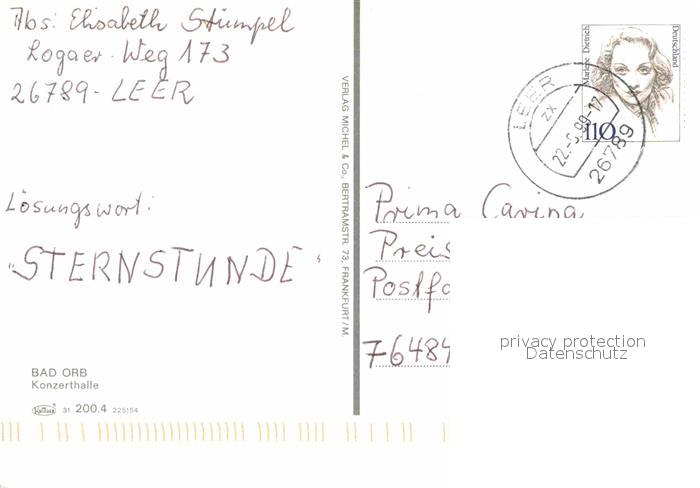 Abs: Elisabeth Stümpel
Logaer Weg 173
26789-LEER
Lösungswort:
"STERNSTUNDE"
BAD ORB
Konzerthalle
31 200.4 225154
VERLAG MICHEL & Co., BERTRAMSTR. 73, FRANKFURT/M.
Marlene Dietrich
Deutschland
110
LEER
zx
22.-5.99-17
26789
Prima Carina
Preis
Postfa
76484
privacy protection
Datenschutz